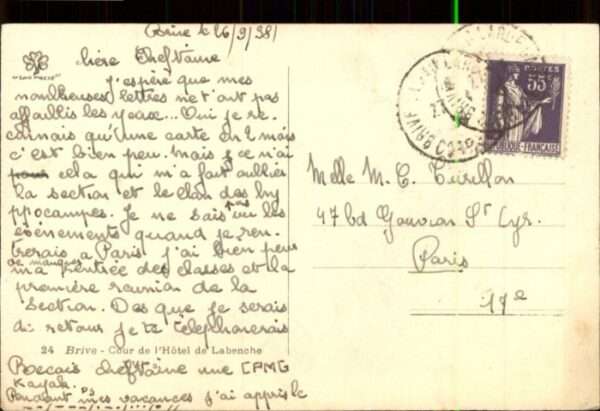 Brive le 26/9/38
Chère Cheftaine
J'espère que mes
nombreuses lettres ne t'ont pas
affaiblis les yeux... Oui je re
connais qu'une carte en 2 mois
c'est bien peu. Mais ce n'ai
pas cela qui m'a fait oublier
la section et le clan des hy
ppocampes. Je ne sais pas vu les
évènements quand je ren
trerais à Paris j'ai bien peur
de manquer
ma rentrée des classes et la
première réunion de la
Section. Dès que je serais
de retour je te téléphonerais
24 Brive - Cour de l'Hôtel de Labenche
Recais cheftaine une CPMG
Kayak.
PS
Pendant mes vacances j'ai appris le
POSTES
55c
REPUBLIQUE-FRANÇAISE
BRIVE CORREZE
Melle M. C.
47 bd Gouvion St Cyr.
Paris
17e